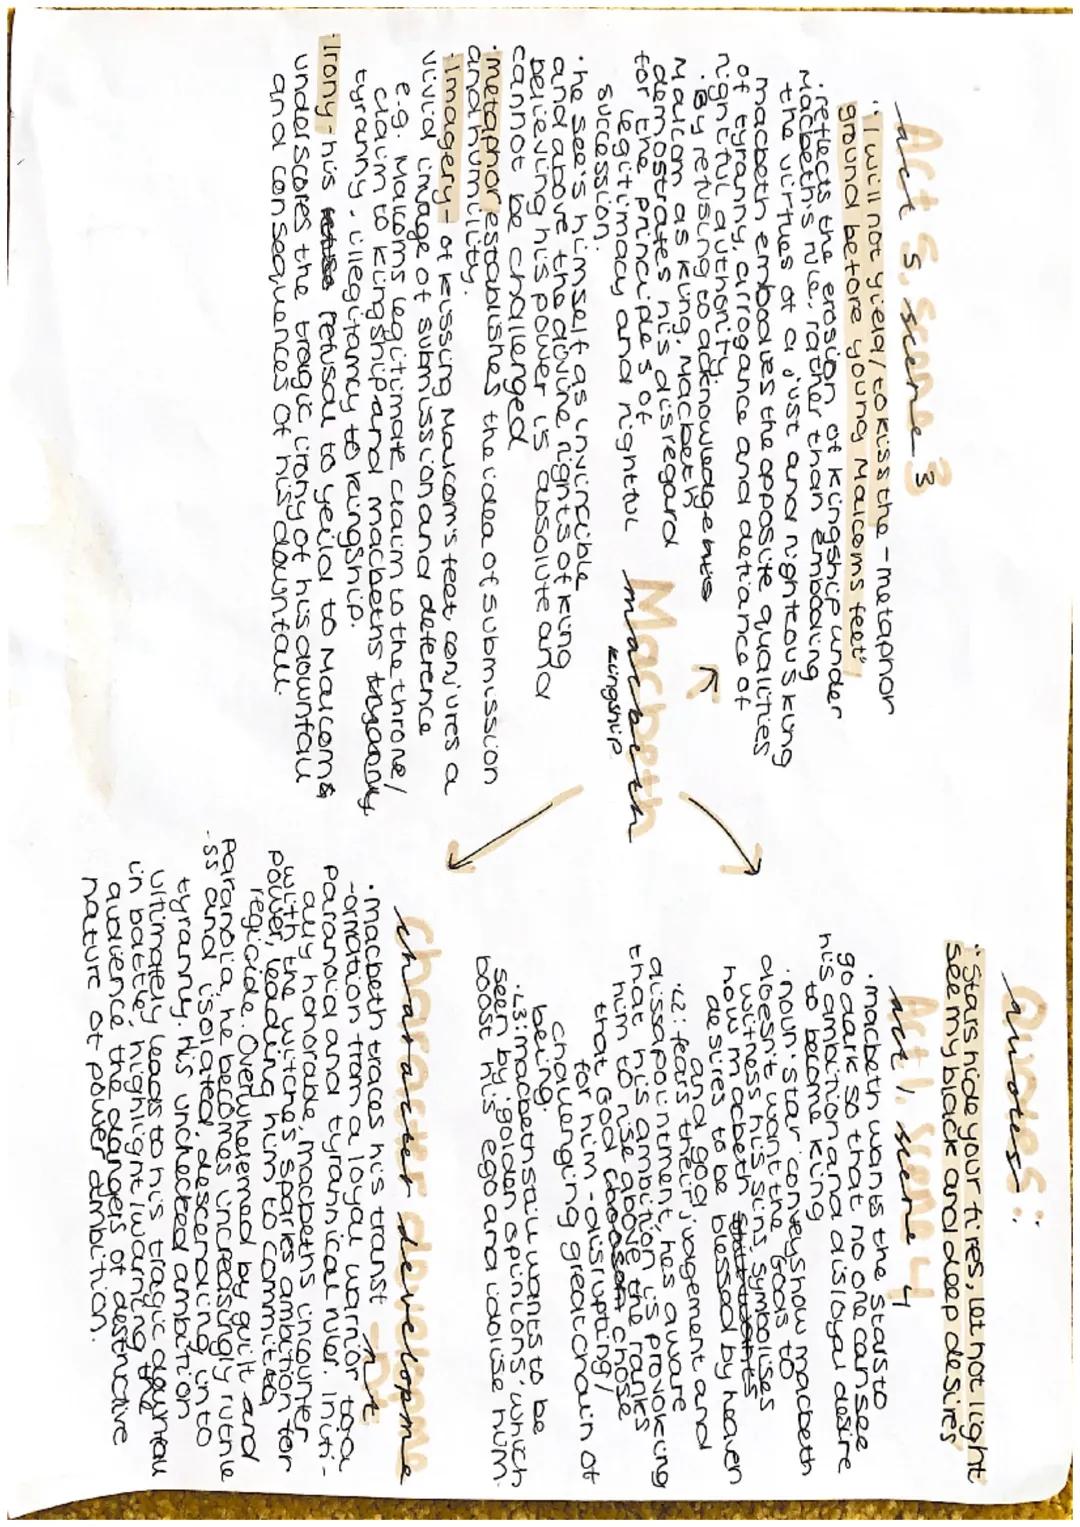 Macbeth
kingship
Act 5, scene 3
"I will not yield / to kiss the - metaphor
ground before young Malcoms feet"
· reflects the erosion of kingship under
Macbeth's rule. rather than embodying
the virtues of a just and righteous king
macbeth embodies the opposite qualities
of tyranny, arrogance and defiance of
rightful authority.
· By refusing to acknowledge his
Malcom as king, Macbeth
demostrates his disregard
for the principles of
legitimacy and rightful
succession.
· he see's himself as invincible
and above the divine rights of king
believing his power is absolute and
cannot be challenged
· metaphor establishes the idea of submission
and humility.
· Imagery - of kissing Malcom's feet conjures a
vivid image of submission and deference
e.g. Malcoms legitimate claim to the throne/
claim to kingship and macbeths
tyranny. illegitamcy to kingship.
· Irony - his refusal to yeild to Malcom
underscores the tragic irony of his downfall
and consequences of his downfall.
Quotes:
"Stars hide your fires, let not light
see my black and deep desires
Act 1, scene 4
· macbeth wants the stars to
go dark so that no one can see
his ambition and disloyal desire
to become king
· noun: star conveys how macbeth
doesn't want the Gods to
witness his sins. symbolises
how macbeth
desires to be blessed by heaven
and god
· L2: fears their judgement and
dissapointment, hes aware
that his ambition is provoking
him to rise above the ranks
that God choosen chose
for him - disrupting/
challenging great chain of
being.
· L3: macbeth sall wants to be
seen by 'golden opinions' which
boost his ego and idolise him.
Character developme
-nt
· macbeth traces his transf
-ormation from a loyal warrior to a
paranoid and tyrannical ruler. Initi-
ally honorable, macbeths incounter
with the witches sparks ambition for
power, leading him to commit
regicide. Overwhelmed by guilt and
paranoia, he becomes increasingly ruthle
-ss and isolated, descending into
tyranny. His unchecked ambition
ultimately leads to his tragic downfall
in battle, highlight/warning the
audience the dangers of destructive
nature of power ambition.